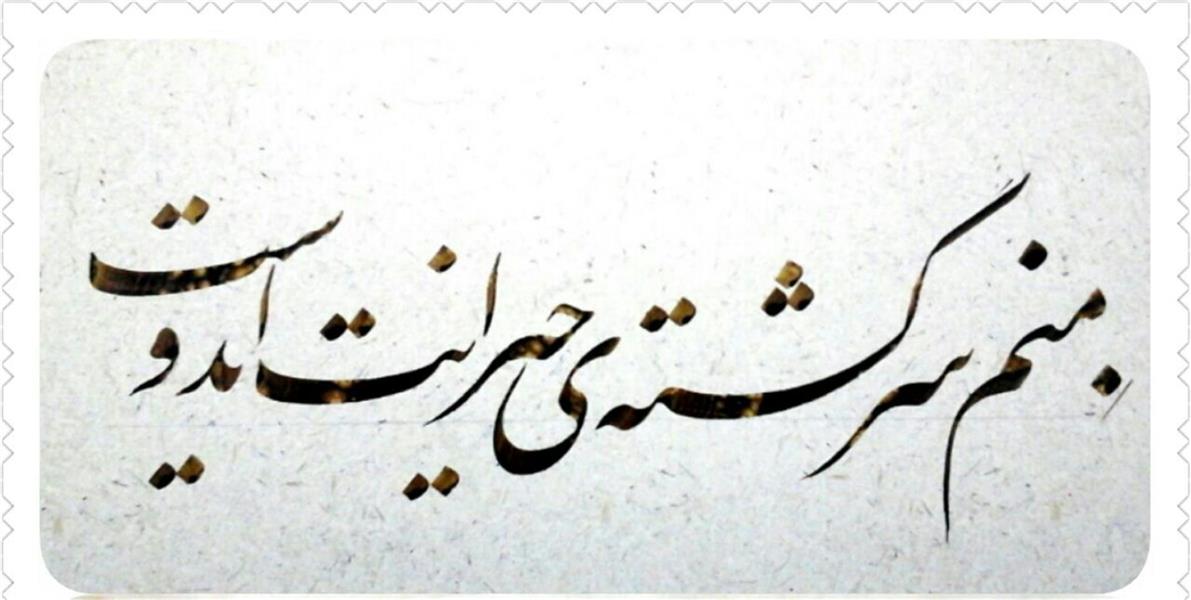 منم سرگشته‌ی حیرانت ایدوست